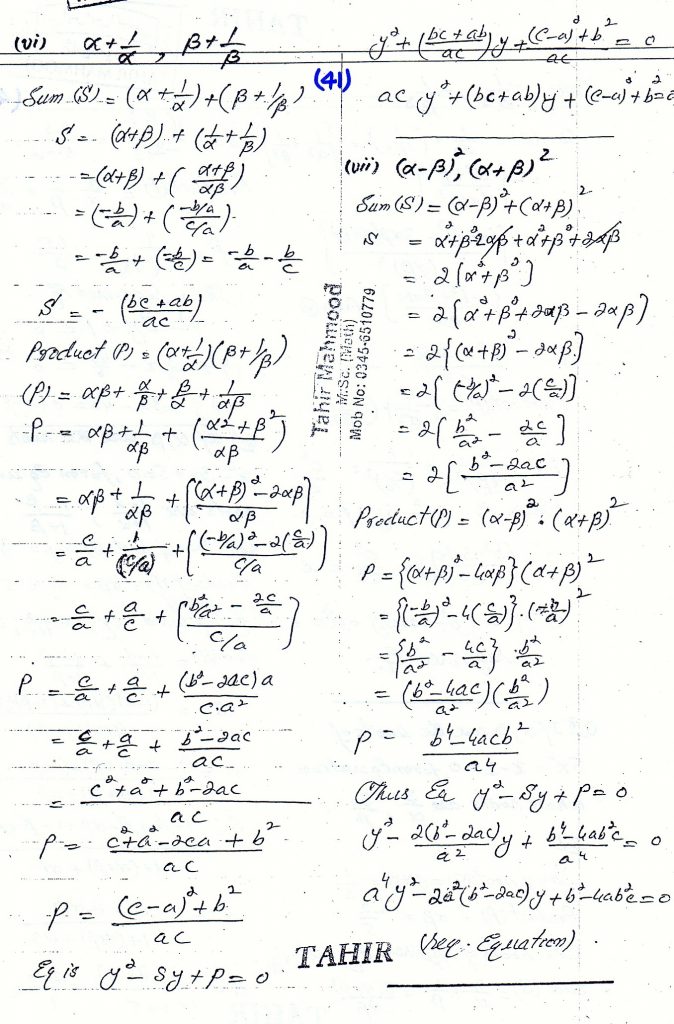 (vi) α + 1/α , β + 1/β
Sum (S) = (α + 1/α) + (β + 1/β)
S = (α+β) + (1/α + 1/β)
= (α+β) + ( (α+β)/(αβ) )
= (-b/a) + ( (-b/a)/(c/a) )
= -b/a + (-b/c) = -b/a - b/c
S = - ( (bc + ab)/(ac) )
Product (P) = (α + 1/α)(β + 1/β)
(P) = αβ + α/β + β/α + 1/(αβ)
P = αβ + 1/(αβ) + ( (α² + β²)/(αβ) )
= αβ + 1/(αβ) + [ ((α+β)² - 2αβ)/(αβ) ]
= c/a + 1/(c/a) + [ ((-b/a)² - 2(c/a))/(c/a) ]
= c/a + a/c + [ (b²/a² - 2c/a)/(c/a) ]
P = c/a + a/c + ((b² - 2ac)a)/(c.a²)
= c/a + a/c + (b² - 2ac)/(ac)
= (c² + a² + b² - 2ac)/(ac)
P = (c² + a² - 2ca + b²)/(ac)
P = ((c-a)² + b²)/(ac)
Eq is y² - Sy + P = 0
(41)
y² + ( (bc + ab)/(ac) )y + ((c-a)² + b²)/(ac) = 0
ac y² + (bc+ab)y + (c-a)² + b² =
(vii) (α-β)², (α+β)²
Sum (S) = (α-β)² + (α+β)²
S = α²+β²-2αβ + α²+β²+2αβ
= 2[α²+β²]
= 2[α²+β²+2αβ - 2αβ)
= 2{(α+β)² - 2αβ.]
= 2[ (-b/a)² - 2(c/a)]
= 2[ b²/a² - 2c/a ]
= 2[ (b² - 2ac)/a² ]
Product (P) = (α-β)² . (α+β)²
P = {(α+β)² - 4αβ} (α+β)²
= {(-b/a)² - 4(c/a)} . (-b/a)²
= {b²/a² - 4c/a} . b²/a²
= ( (b² - 4ac)/a² )( b²/a² )
P = (b⁴ - 4acb²)/a⁴
Thus Eq y² - Sy + P = 0
y² - (2(b² - 2ac)/a²)y + (b⁴ - 4ab²c)/a⁴ = 0
a⁴y² - 2a²(b² - 2ac)y + b⁴ - 4ab²c = 0
(req. Equation).
Tahir Mehmood
M.Sc. (Math)
Mob No: 0345-6510779
TAHIR